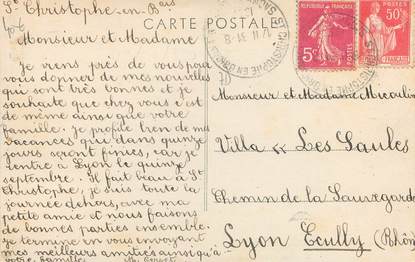 St Christophe-en-Bris
CARTE POSTALE
Monsieur et Madame
Je viens près de vous pour
vous donner de mes nouvelles
qui sont très bonnes et je
souhaite que chez vous c'est
de même ainsi que votre
famille. Je profite bien de mes
vacances que dans quinze
jours seront finies, car je
rentre à Lyon le quinze
septembre. Il fait beau à St
Christophe, je suis toute la
journée dehors, avec ma
petite amie et nous faisons
de bonnes parties ensemble.
Je termine en vous envoyant
mes meilleurs amitiés ainsi qu'à
votre famille
5c
POSTES
50c
Monsieur et Madame
Villa "Les Gaules
Chemin de la Sauvegarde
Lyon Ecully (Rhône)